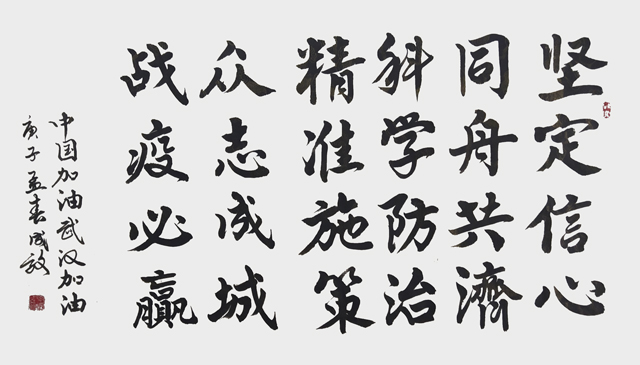 坚定信心
同舟共濟
科学防治
精准施策
众志成城
战疫必赢
中国加油武汉加油
庚子孟春成敌